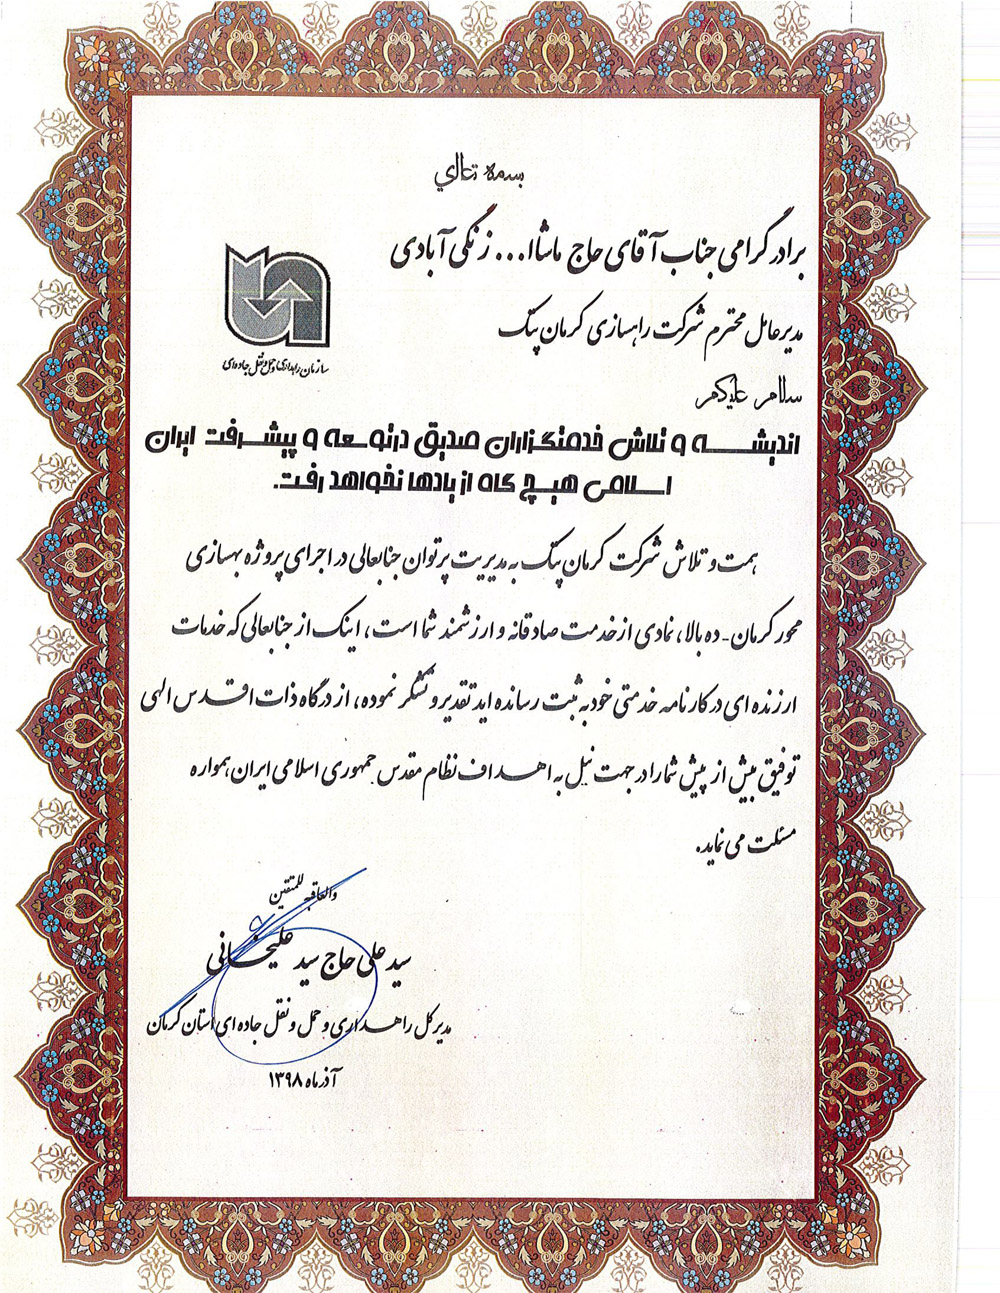 بسمه تعالی
برادر گرامی جناب آقای حاج ماشاا... زنگی آبادی
مدیرعامل محترم شرکت راهسازی کرمان پیتک
سازمان راهداری و حمل و نقل جاده ای
سلام علیکم
اندیشه و تلاش خدمتگزاران صدیق در توسعه و پیشرفت ایران
اسلامی هیچ گاه از یادها نخواهد رفت.
همت و تلاش شرکت کرمان پیتک به مدیریت پرتوان جنابعالی در اجرای پروژه بهسازی
محور کرمان - ده بالا، نمادی از خدمت صادقانه و ارزشمند شما است، اینک از جنابعالی که خدمات
ارزنده ای در کارنامه خدمتی خود به ثبت رسانده اید تقدیر و تشکر نموده، از درگاه ذات اقدس الهی
توفیق بیش از پیش شما را در جهت نیل به اهداف نظام مقدس جمهوری اسلامی ایران همواره
مسئلت می نماید.
والعاقبه للمتقین
سید علی حاج سید علیخانی
مدیر کل راهداری و حمل و نقل جاده ای استان کرمان
آذر ماه ۱۳۹۸